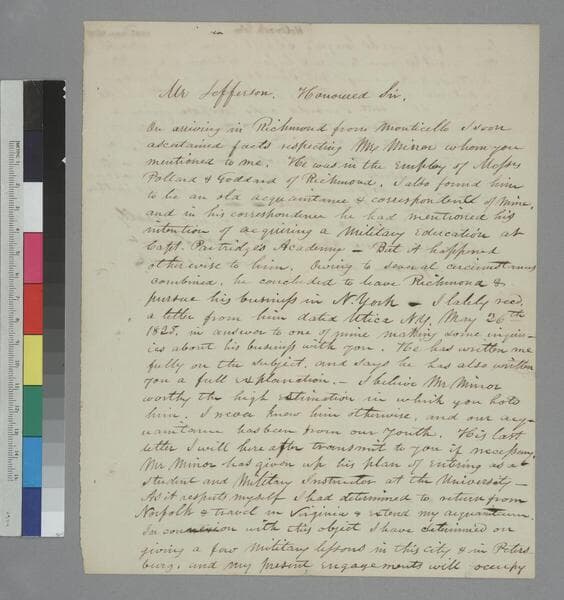 Mr Jefferson. Honoured Sir,
On arriving in Richmond from Monticello I soon
ascertained facts respecting Mr Minor whom you
mentioned to me. He was in the Employ of Messrs
Pollard & Goddard of Richmond. I also found him
to be an old acquaintance & correspondent of mine,
and in his correspondence he had mentioned his
intention of acquiring a Military Education at
Capt. Partridge's Academy – But it happened
otherwise to him. Owing to several circumstances
combined, he concluded to leave Richmond &
pursue his business in N. York – I lately recd.
a letter from him dated Utica N.Y. May 26th
1825, in answer to one of mine making some inquir-
ies about his business with you. He has written me
fully on the subject, and says he has also written
you a full explanation. – I believe Mr Minor
worthy the high estimation in which you hold
him. I never knew him otherwise, and our acq-
uaintance has been from our youth. His last
letter I will here after transmit to you if necessary.
Mr Minor has given up his plan of entering as a
student and Military Instructor at the University –
As it respects myself I had determined to return from
Norfolk & travel in Virginia & extend my acquaintance
In connexion with this object I have determined on
giving a few Military lessons in this city & in Peters
burg, and my present engagements will occupy